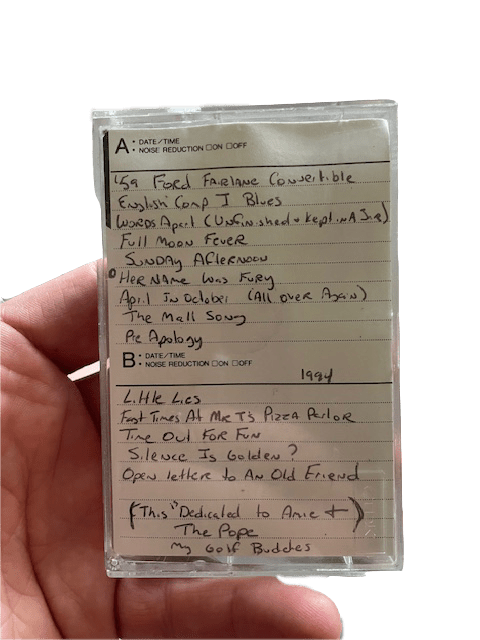 A: • DATE/TIME
• NOISE REDUCTION □ON □OFF
'59 Ford Fairlane Convertible
English Comp I Blues
Words April (Unfinished + Kept in A Jar)
Full Moon Fever
Sunday Afternoon
Her Name Was Fury
April In October (All over Again)
The Mall Song
Pie Apology
B: • DATE/TIME
• NOISE REDUCTION □ON □OFF
1994
Little Lies
Fast Times At Mr T's Pizza Parlor
Time Out For Fun
Silence Is Golden?
Open letter to An Old Friend
(This is Dedicated to Amie +)
The Pope
My Golf Buddies